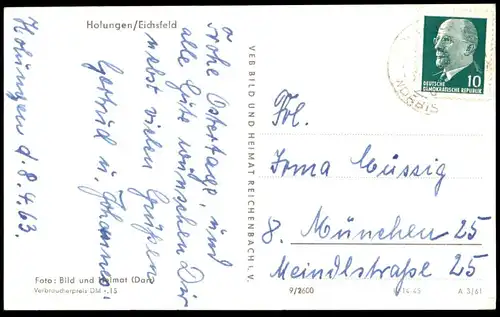 Holungen/Eichsfeld
Holungen d. 8.4.63.
Frohe Ostertage, und
alle Gute wünschen Dir
nebst vielen Grüßen
Gertrud u. Johannes.
Foto: Bild und Heimat (Dorr)
Verbraucherpreis DM -.15
VEB BILD UND HEIMAT REICHENBACH I. V.
10
DEUTSCHE
DEMOKRATISCHE REPUBLIK
Frl.
Irma Müssig
8. München 25
Meindlstraße 25
9/2600
A 3/61